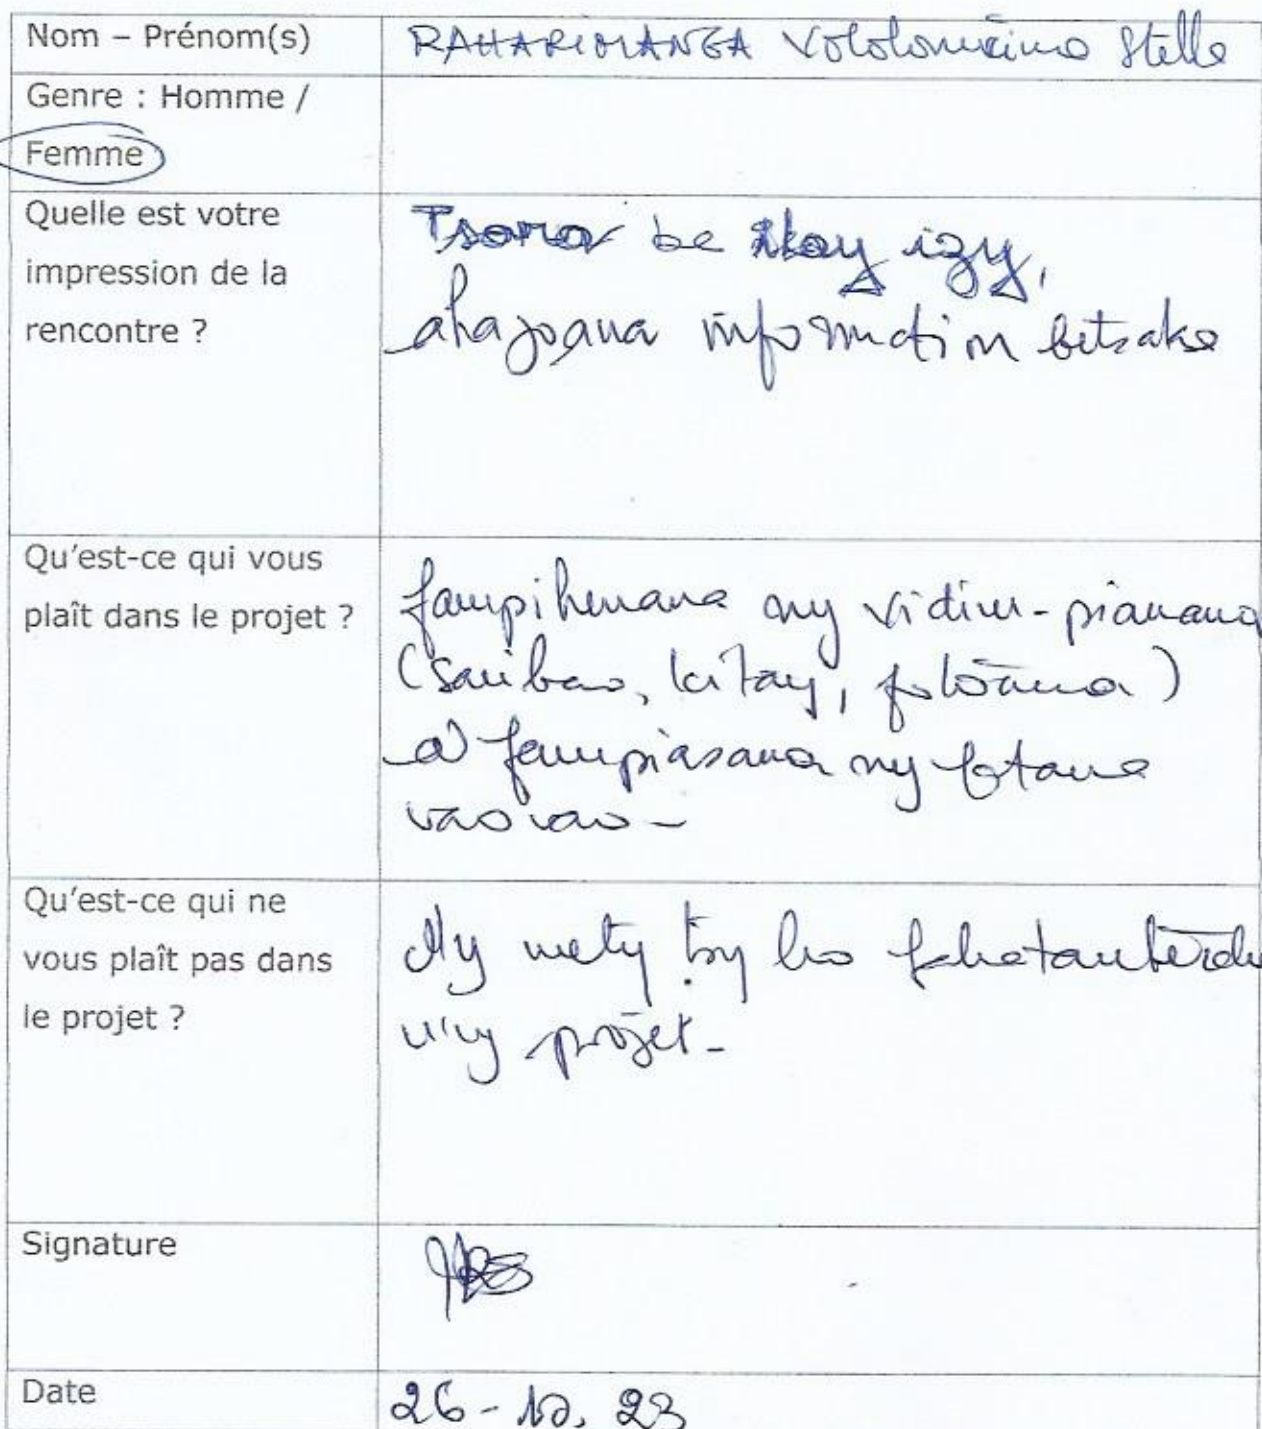 Nom – Prénom(s)
RAHARIMANGA Vololoniaina Stelle
Genre : Homme /
Femme
Quelle est votre
impression de la
rencontre ?
Tsara be ilay izy,
ahazoana information betsaka
Qu'est-ce qui vous
plaît dans le projet ?
fampihenana ny vidim-piainana
(saribao, kitay, fotoana)
fampiasana ny fatana
vaovao -
Qu'est-ce qui ne
vous plaît pas dans
le projet ?
Ny mety tsy ho
n'ny projet -
Signature
Date
26-10.23